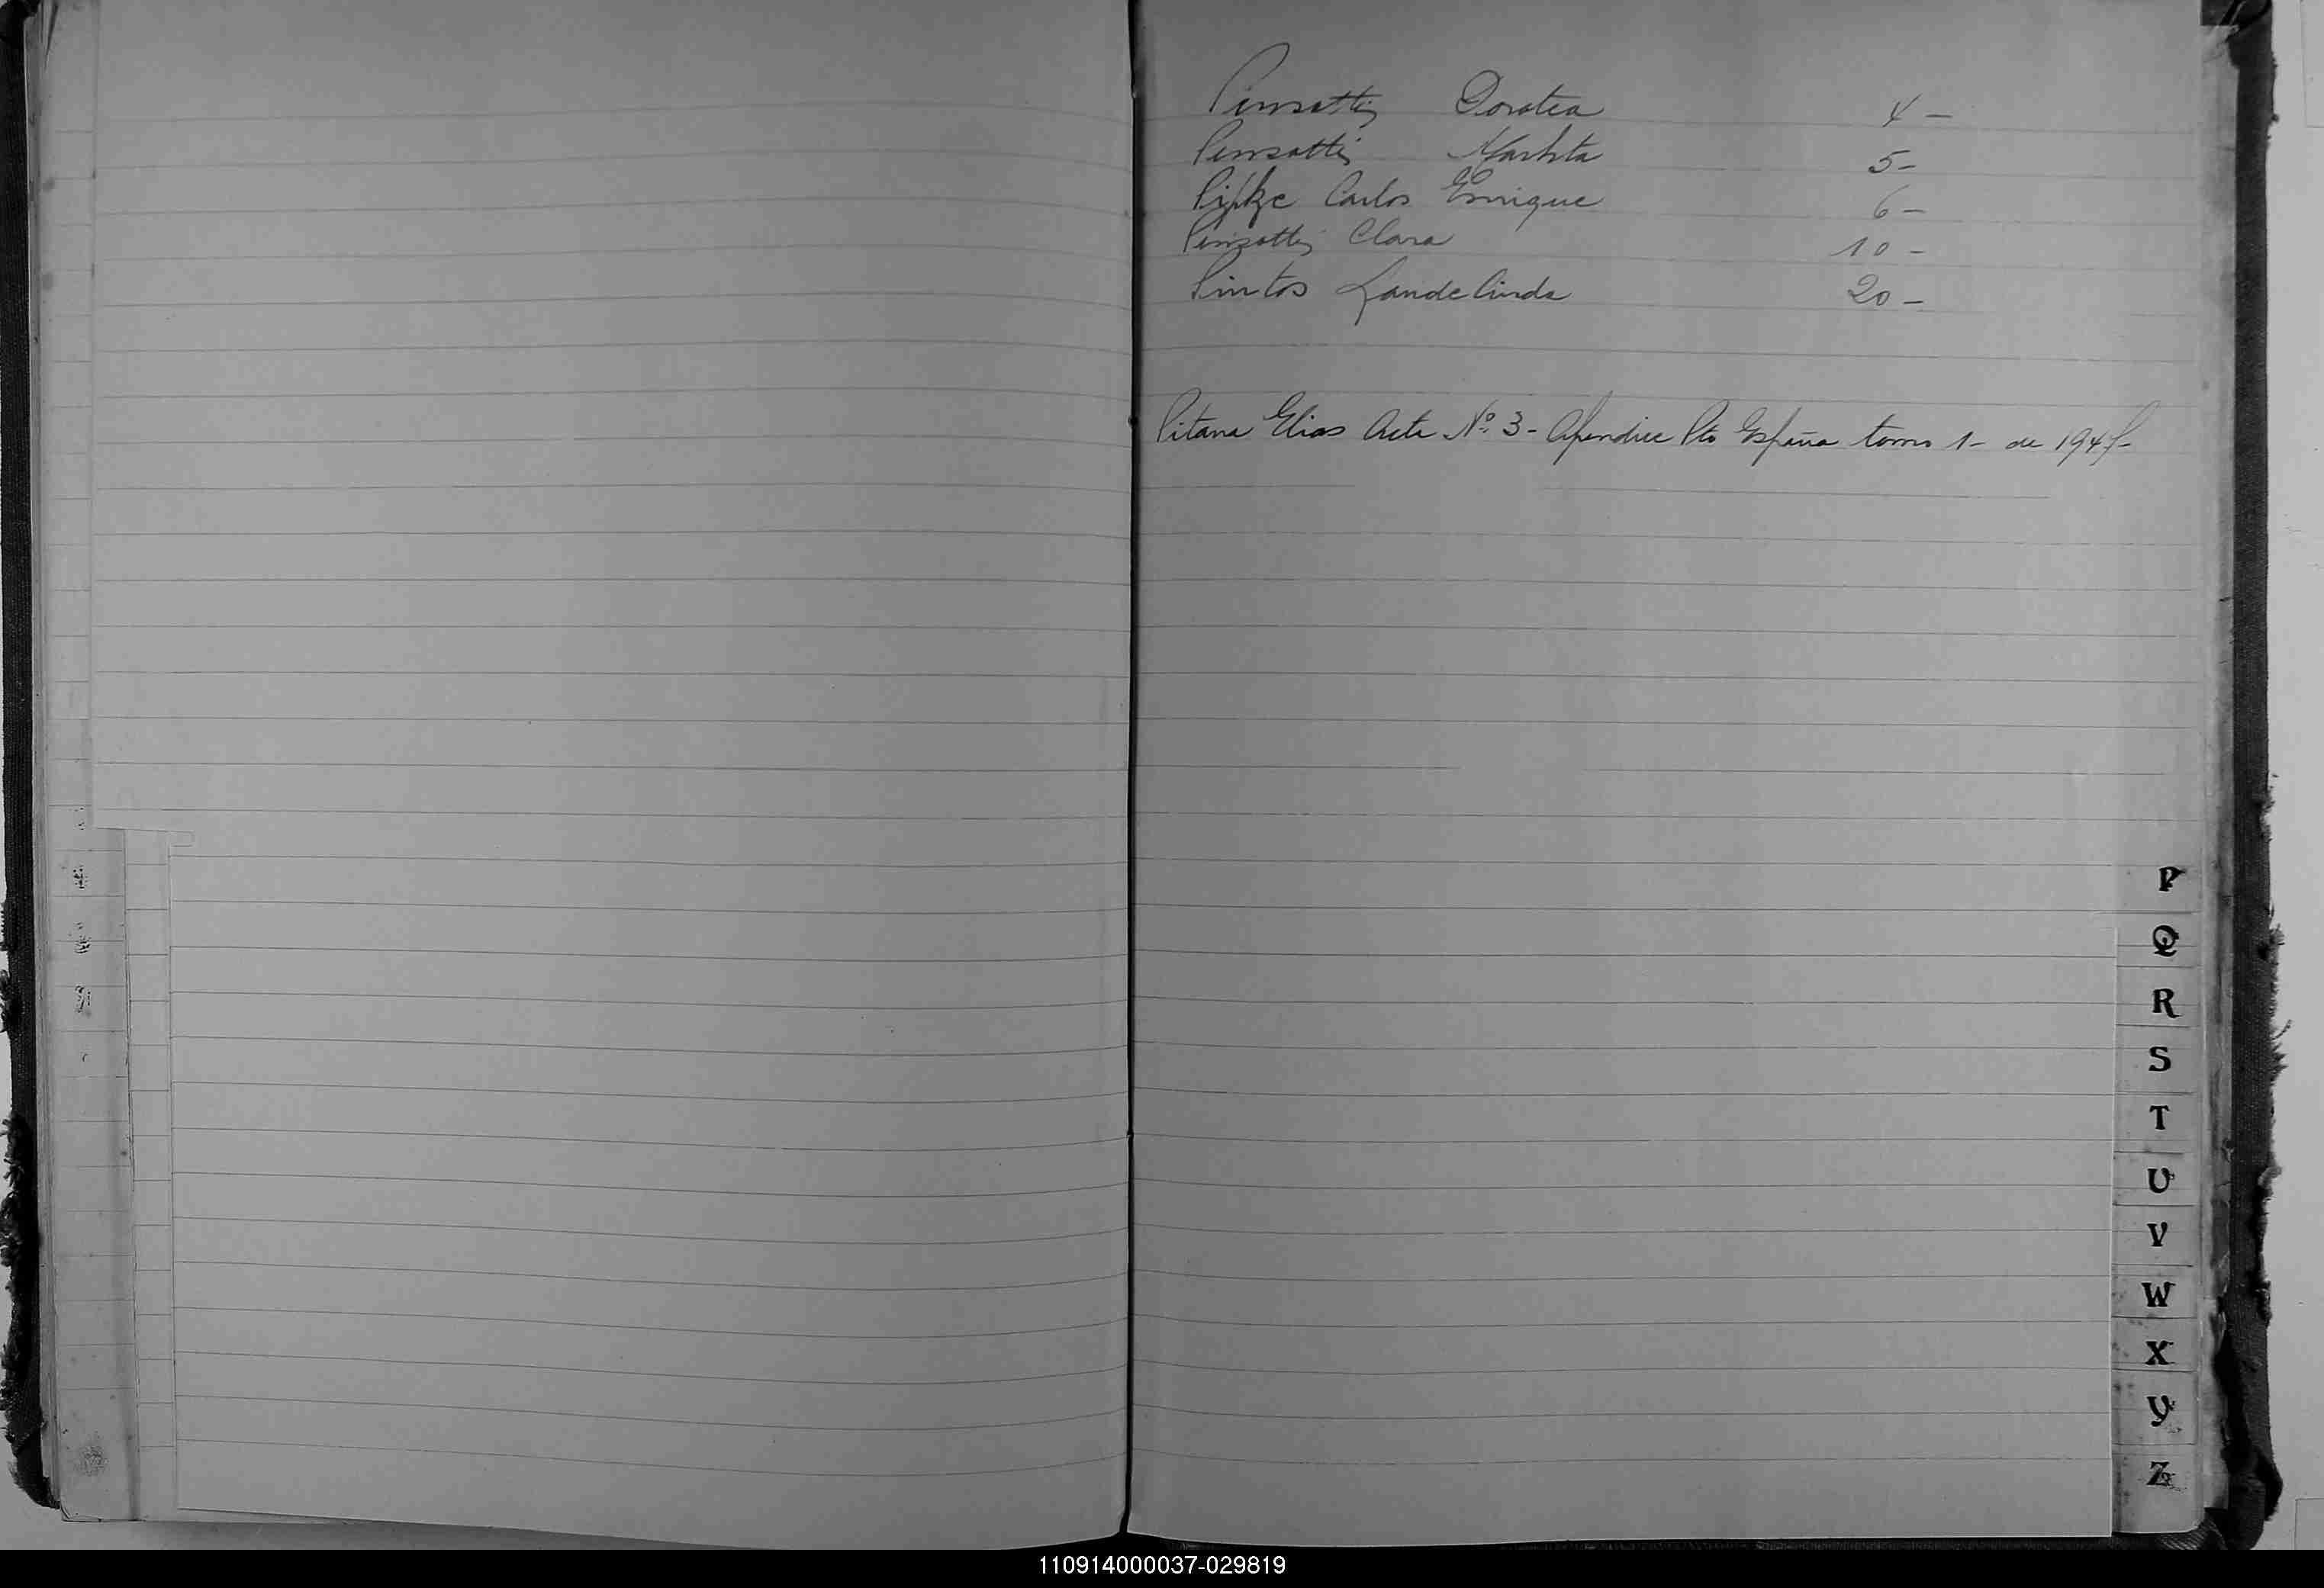 Pinsatti Dorotea 4 -
Pinsatti Marhta 5 -
Pipke Carlos Enrique 6 -
Pinzatti Clara 10 -
Pintos Landelinda 20 -
Pitana Elias Acta Nº 3 - Apendice Pto España tomo 1 - de
P
Q
R
S
T
U
V
W
X
Y
Z
110914000037-029819